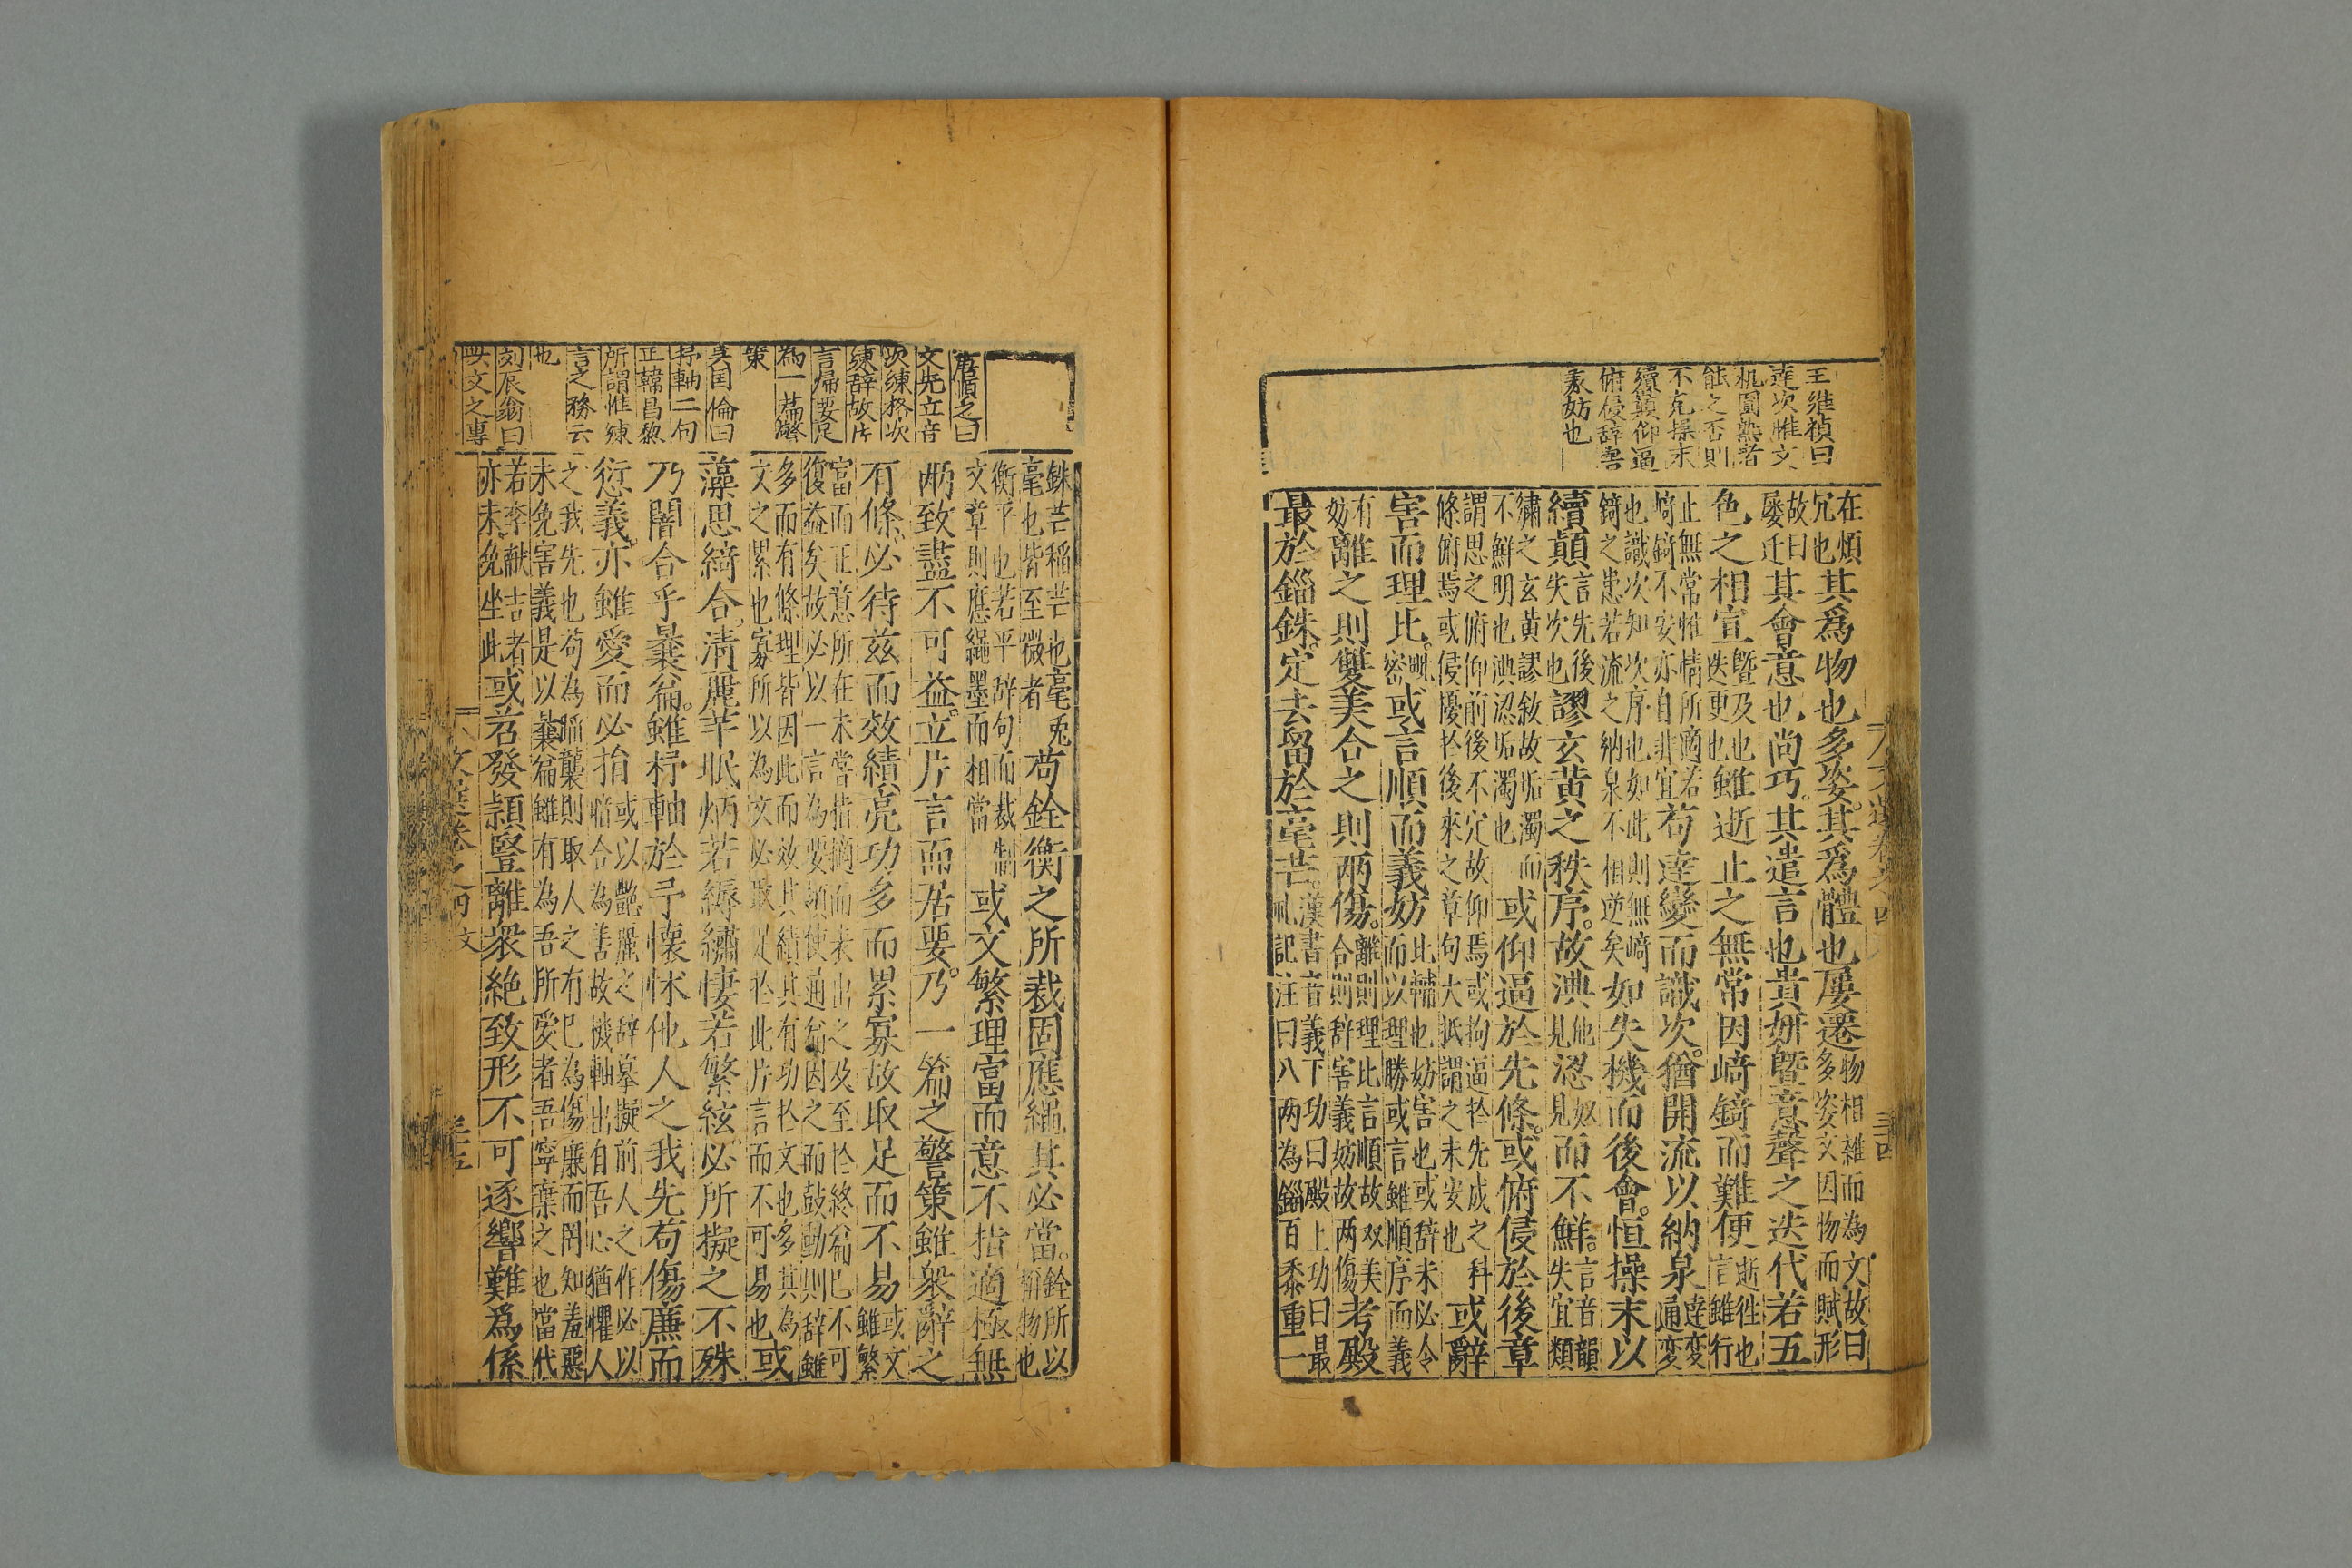 王維禎曰
達次惟文
机圓熟者
能之否則
不克操末
續顛仰逼
俯侵辞害
義妨也
在煩故曰
冗也屢迁
其爲物也多姿其爲體也屢遷
物相雜而為文故曰
多姿文因物而賦形
其會意也尚巧其遣言也貴妍曁音聲之迭代若五
色之相宣
曁及也
迭更也
雖逝止之無常因崎錡而難便
逝徃也
言雖行
止無常惟情所適若
崎錡不安亦自非宜
苟達變而識次猶開流以納泉
達変
通変
也識次知次序也如此則無崎
錡之患若流之納泉不相逆矣
如失機而後會恒操末以
續顛
言先後
失次也
謬玄黄之秩序故淟
他
見
涊
奴
見
而不鮮
言音韻
失宜類
繡之玄黄謬敘故垢濁而
不鮮明也淟涊垢濁也
或仰逼於先條或俯侵於後章
謂思之俯仰前後不定故仰焉或拘逼扵先成之科
條俯焉或侵優扵後來之章句大抵謂之未安也
或辭
害而理比
毗
密
或言順而義妨
此輔也妨害也或辞未必令
而以理勝或言雖順序而義
有
妨
離之則雙美合之則兩傷
離則理比言順故双美
合則辞害義妨故两傷
考殿
最於錙銖定去留於毫芒
漢書音義下功曰殿上功曰最
記注曰八两為錙百黍重一
唐順之曰
文先立音
次練格次
練辞故片
言𢩁要足
為一篇警
策
吴国倫曰
抒軸二句
正韓昌黎
所謂惟陳
言之務云
也
刻辰翁曰
四文之專
銖芒稲芒也毫兎
毫也皆至微者
苟銓衡之所裁固應繩其必當
銓所以
稱物也
衡平也若平辞句而裁制
文章則應繩墨而相當
或文繁理富而意不指適極無
兩致盡不可益立片言而居要乃一篇之警策雖衆辭之
有條必待茲而效績亮功多而累寡故取足而不易
或文
雖繁
富而正意所在未嘗指摘而未出之及至扵終篇已不可
復益矣故必以一言為要領使通篇因之而鼓動則辞雖
多而有條理皆因此而效其績其有功扵文也多其為
文之累也寡所以為文必取足扵此片言而不可易也
或
藻思綺合清麗芊眠炳若縟繡悽若繁絃必所擬之不殊
乃闇合乎曩篇雖杼軸於予懐怵他人之我先苟傷廉而
愆義亦雖愛而必捐
或以艶麗之辞摹擬前人之作必以
暗合為善故機軸出自吾心猶懼人
之我先也苟為蹈襲則取人之有巳為傷廉而罔知羞惡
未免害義是以曩篇雖有為吾所愛者吾寧棄之也當代
若李献吉者
亦未免坐此
或苕發頴豎離衆絶致形不可逐響難爲係
文選卷之四
文
三十五